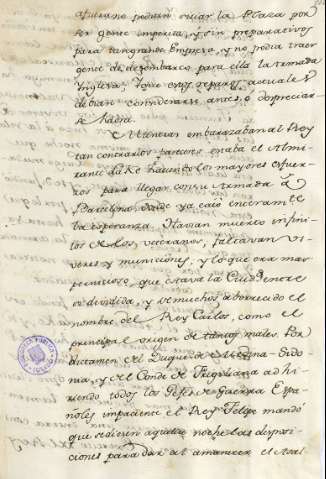 Africano podrian sitiar la Plaza por
ser gente imperita, y sin preparativos
para tan grande Empeño, y no podia traer
gente de desembarco para ella la Armada
Inglesa; y que estos reparos, o cavales
debian considerarse antes, o despreciar
se hasta
Mientras embarazaban al Rey
tan contrarios pareceres estaba el Almi
rante Lake haciendo los mayores esfuer
zos para llegar con su Armada á
Barcelona, donde ya caió enteramte
la esperanza. Havian muerto infini
tos de los veteranos, faltavan vi
veres y municiones, y lo que era mas
pernicioso, que estava la Ciudad entre
si dividida, y de muchos aborrecido el
nombre del Rey Carlos, como el
principal origen de tantos males. Por
dictamen del Duque de Medina-Sido
nia, y del Conde de Frigiliana adhi
riendo todos los Gefes de Guerra Espa
ñoles impaciente el Rey Felipe mandó
que se diesen aquella noche las disposi
ciones para dar al amanecer el Asal